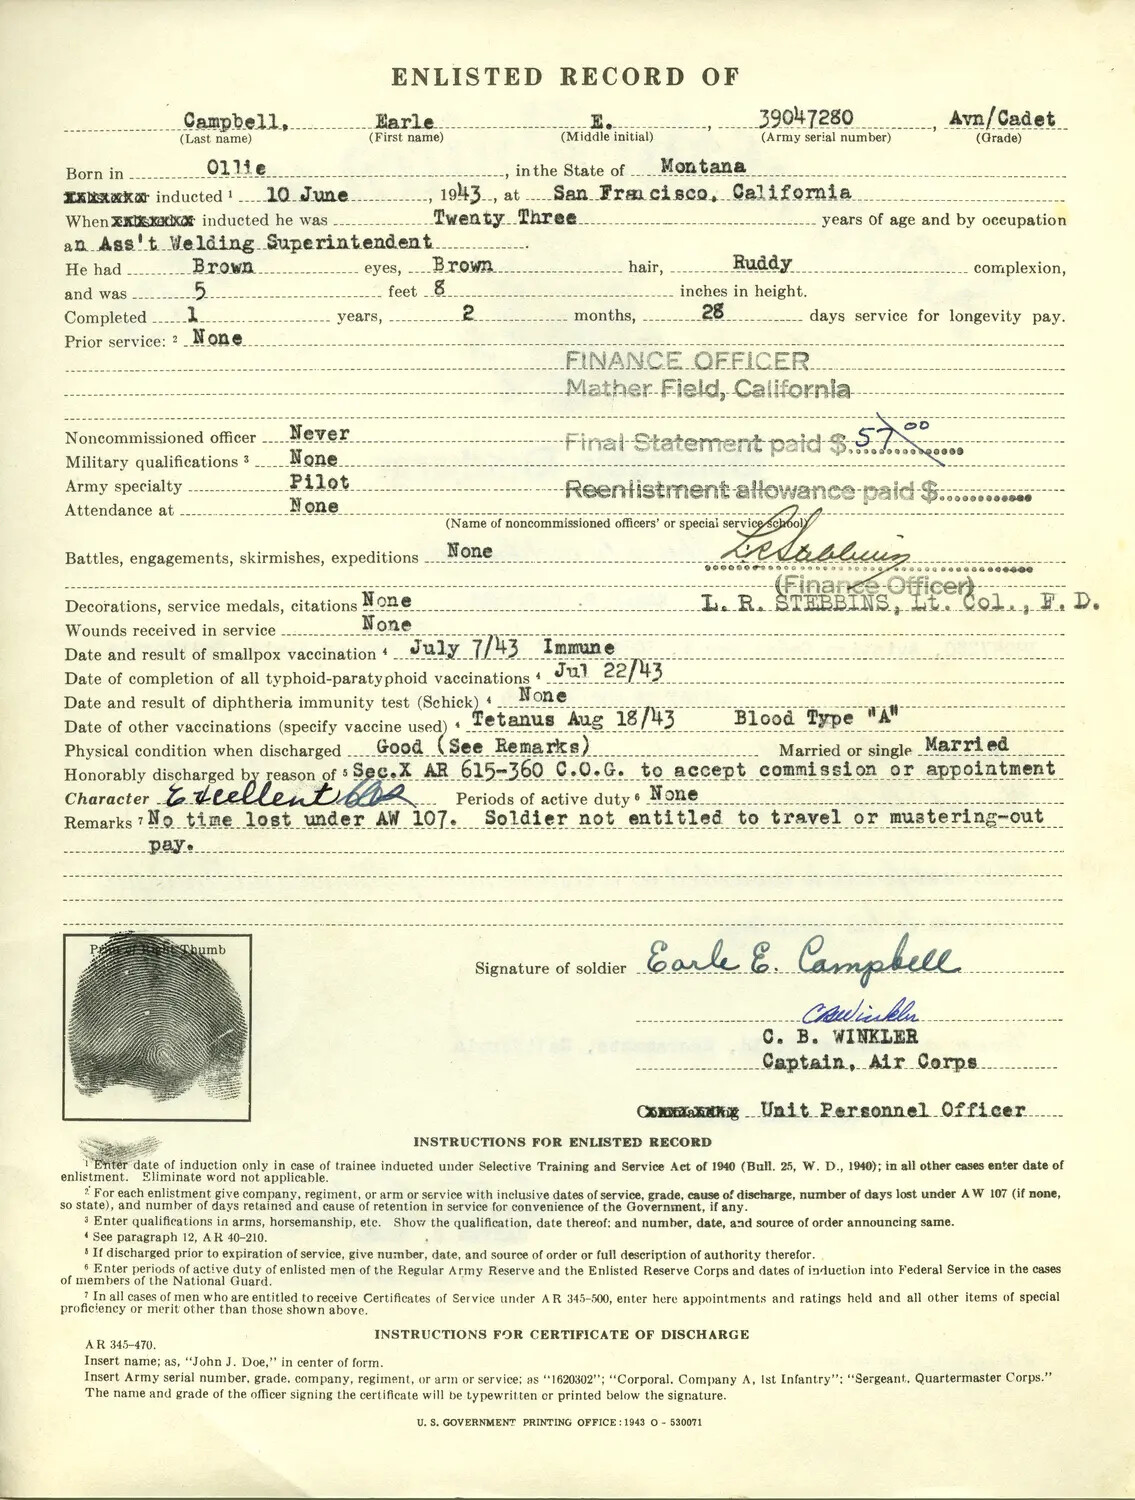 ENLISTED RECORD OF
Campbell, Earle E. , 39047280 , Avn/Cadet
(Last name) (First name) (Middle initial) (Army serial number) (Grade)
Born in Ollie , in the State of Montana
inducted 1 10 June , 1943 , at San Francisco, California
When inducted he was Twenty Three years of age and by occupation
an Ass't Welding Superintendent .
He had Brown eyes, Brown hair, Ruddy complexion,
and was 5 feet 8 inches in height.
Completed 1 years, 2 months, 28 days service for longevity pay.
Prior service: 2 None
FINANCE OFFICER
Mather Field, California
Noncommissioned officer Never
Final Statement paid $ 57 00
Military qualifications 3 None
Army specialty Pilot
Reenlistment allowance paid $
Attendance at None
(Name of noncommissioned officers' or special service school)
Battles, engagements, skirmishes, expeditions None
(Finance Officer)
Decorations, service medals, citations None L. R. STEBBINS, Lt. Col., F. D.
Wounds received in service None
Date and result of smallpox vaccination 4 July 7/43 Immune
Date of completion of all typhoid-paratyphoid vaccinations 4 Jul 22/43
Date and result of diphtheria immunity test (Schick) 4 None
Date of other vaccinations (specify vaccine used) 4 Tetanus Aug 18/43 Blood Type "A"
Physical condition when discharged Good (See Remarks) Married or single Married
Honorably discharged by reason of 5 Sec.X AR 615-360 C.O.G. to accept commission or appointment
Character Excellent Periods of active duty 6 None
Remarks 7 No time lost under AW 107. Soldier not entitled to travel or mustering-out
pay.
Print of Right Thumb
Signature of soldier Earle E. Campbell
CBWinkler
C. B. WINKLER
Captain, Air Corps
Unit Personnel Officer
INSTRUCTIONS FOR ENLISTED RECORD
1 Enter date of induction only in case of trainee inducted under Selective Training and Service Act of 1940 (Bull. 25, W. D., 1940); in all other cases enter date of
enlistment. Eliminate word not applicable.
2 For each enlistment give company, regiment, or arm or service with inclusive dates of service, grade, cause of discharge, number of days lost under AW 107 (if none,
so state), and number of days retained and cause of retention in service for convenience of the Government, if any.
3 Enter qualifications in arms, horsemanship, etc. Show the qualification, date thereof; and number, date, and source of order announcing same.
4 See paragraph 12, AR 40-210.
5 If discharged prior to expiration of service, give number, date, and source of order or full description of authority therefor.
6 Enter periods of active duty of enlisted men of the Regular Army Reserve and the Enlisted Reserve Corps and dates of induction into Federal Service in the cases
of members of the National Guard.
7 In all cases of men who are entitled to receive Certificates of Service under AR 345-500, enter here appointments and ratings held and all other items of special
proficiency or merit other than those shown above.
INSTRUCTIONS FOR CERTIFICATE OF DISCHARGE
AR 345-470.
Insert name; as, "John J. Doe," in center of form.
Insert Army serial number, grade, company, regiment, or arm or service; as "1620302"; "Corporal, Company A, 1st Infantry"; "Sergeant, Quartermaster Corps."
The name and grade of the officer signing the certificate will be typewritten or printed below the signature.
U. S. GOVERNMENT PRINTING OFFICE : 1943 O - 530071